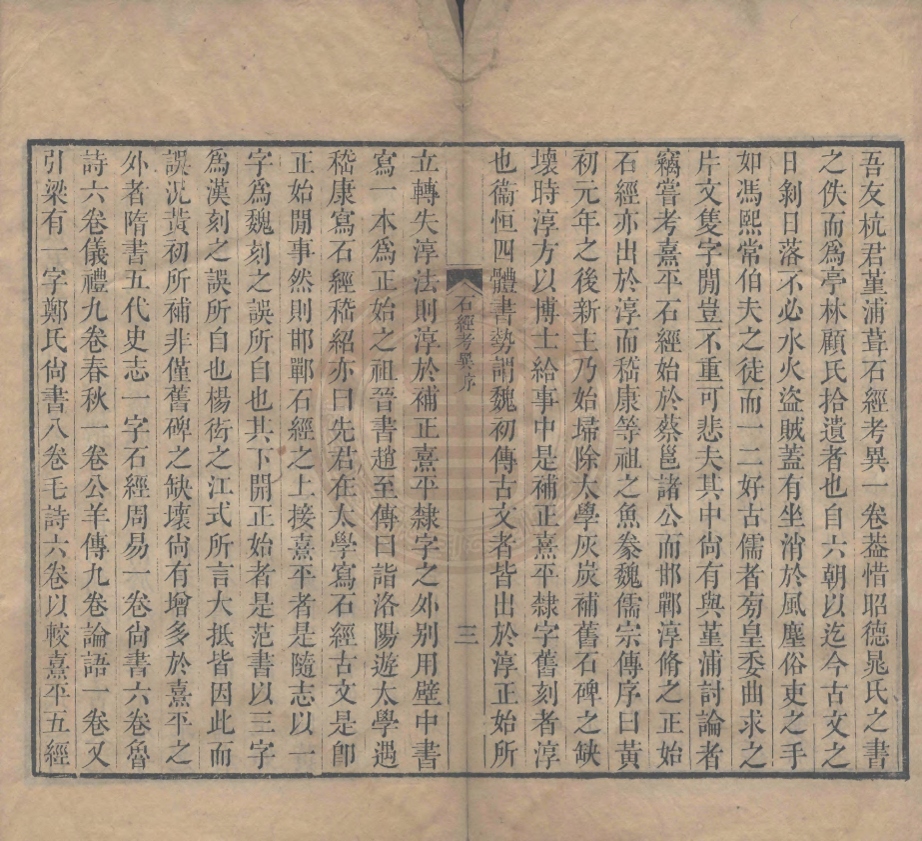 吾友杭君菫浦葺石經考異一卷葢惜昭德晁氏之書
之佚而爲亭林顧氏拾遺者也自六朝以迄今古文之
日剝日落不必水火盜賊蓋有坐消於風塵俗吏之手
如馮熙常伯夫之徒而一二好古儒者旁皇委曲求之
片文隻字閒豈不重可悲夫其中尙有與菫浦討論者
竊嘗考熹平石經始於蔡邕諸公而邯鄲淳脩之正始
石經亦出於淳而嵇康等祖之魚豢魏儒宗傳序曰黃
初元年之後新主乃始埽除太學灰炭補舊石碑之缺
壞時淳方以博士給事中是補正熹平隸字舊刻者淳
也衞恒四體書勢謂魏初傳古文者皆出於淳正始所
石經考異序
三
立轉失淳法則淳於補正熹平隸字之外別用壁中書
寫一本爲正始之祖晉書趙至傳曰詣洛陽遊太學遇
嵇康寫石經嵇紹亦曰先君在太學寫石經古文是卽
正始閒事然則邯鄲石經之上接熹平者是隨志以一
字爲魏刻之誤所自也其下開正始者是范書以三字
爲漢刻之誤所自也楊衒之江式所言大抵皆因此而
誤況黃初所補非僅舊碑之缺壞尙有增多於熹平之
外者隋書五代史志一字石經周易一卷尙書六卷魯
詩六卷儀禮九卷春秋一卷公羊傳九卷論語一卷又
引梁有一字鄭氏尙書八卷毛詩六卷以較熹平五經